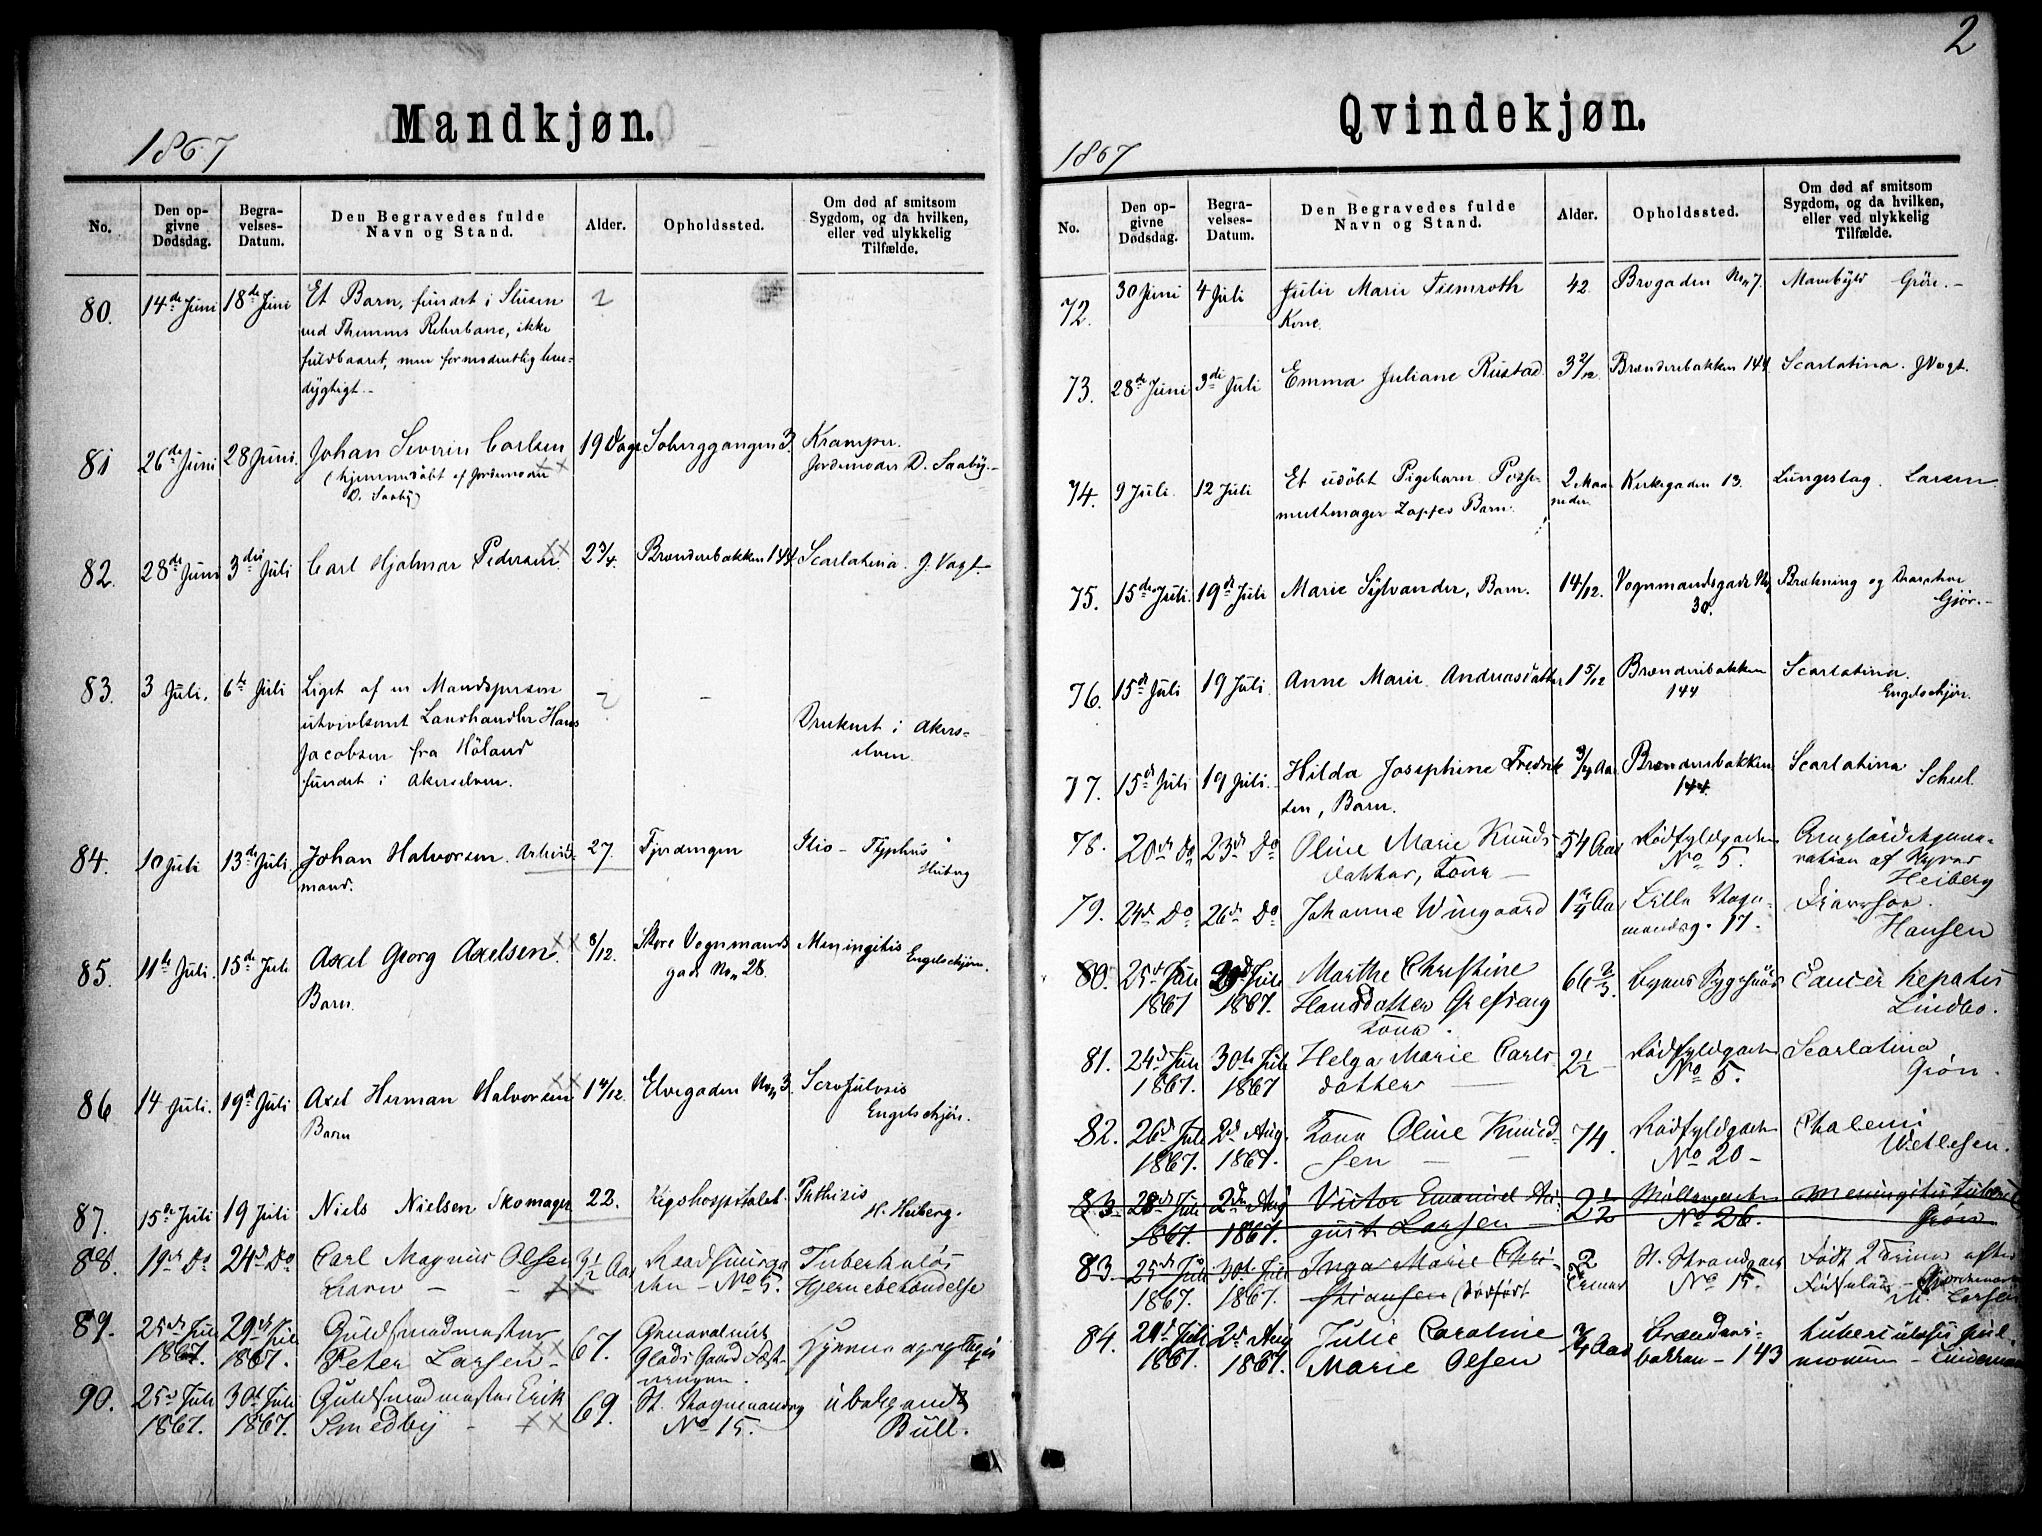 2
Mandkjøn.
1867
No.
Den op-
givne
Dødsdag.
Begra-
velses-
Datum.
Den Begravedes fulde
Navn og Stand.
Alder.
Opholdssted.
Om død af smitsom
Sygdom, og da hvilken,
eller ved ulykkelig
Tilfælde.
80. 14de Juni 18de Juni Et Barn, fundet i Slusen
ved Thømms Reberbane, ikke
fuldbaaret, men formodentlig
dygtigt.
81 26de Juni 28 Juni. Johan Severin Carlsen 19 Dage 3. Kramper.
(hjemmedöbt af Jordemoder Jordemoder D. Saaby.
D. Saaby)
82. 28de Juni 3die Juli Carl Hjalmar Pedersen 2 3/4. Brænderibakken 144 Scarlatina. J. Vogt.
83. 3 Juli. 6te Juli Liget af en Mandsperson –
utvivlsomt Landhandler Hans Druknet i Akers-
Jacobsen fra Höland elven.
fundet i Akerselven.
84. 10 Juli 13de Juli Johan Halvorsen Arbeids- 27. Fjerdingen Ilio - Typhus
mand. Heiberg
85. 11te Juli. 15de Juli Axel Georg Axelsen 8/12. Store Vognmands Meningitis
Barn. gade No. 28. Engelschjön.
86 14 Juli. 19de Juli Axel Herman Halvorsen Elvegaden No. 3. Scrofulosis
Barn Engelschjön.
87. 15de Juli 19 Juli Niels Nielsen Skomager 22. Rigshospitalet.
H. Heiberg.
88. 19de Do 24de Do Carl Magnus Olsen 3 1/2 Aar
Barn No 5. Hjernebetændelse
89. 25de Juli 29de Juli Guldsmedmester 67.
1867. 1867. Peter Larsen
90. 25de Juli 30te Juli Guldsmedmester Erik 69. St. Vognmandsg ubekjendt
1867. 1867. Smedby No 15. Bull.
Qvindekjøn.
1867
No.
Den op-
givne
Dødsdag.
Begra-
velses-
Datum.
Den Begravedes fulde
Navn og Stand.
Alder.
Opholdssted.
Om død af smitsom
Sygdom, og da hvilken,
eller ved ulykkelig
Tilfælde.
72. 30 Juni 4 Juli Julie Marie Tiemroth 42. Brogaden No. 7. Grön.
Kone.
73. 28de Juni 3die Juli Emma Juliane Rustad. 3 2/12. Brænderibakken 144 Scarlatina. J Vogt.
74. 9 Juli. 12 Juli Et udöbt Pigebarn 2 Maa- Kirkegaden 13. Lungeslag. Larsen
Zapfes Barn. neder.
75. 15de Juli. 19de Juli Marie Sylvander, Barn. 14/12. Vognmandsgade No Brækning og Diarrhoe
30. Gjör.
76. 15de Juli 19 Juli. Anne Marie Andreasdatter 1 5/12 Brænderibakken Scarlatina.
144 Engelschjön.
77. 15de Juli 19 Juli. Hilda Josephine Fredrik- 3/4 Aar Brænderibakken Scarlatina
sen, Barn. 144. Scheel.
78. 20de Do 23de Do Oline Marie Knuds- 54 Aar Rødfyldgaden
datter, Kone No 5. Heiberg
79. 24de Do 26de Do Johanne Wingaard Lille Vogn- Diarrhoe.
mandsg. 17. Hansen
80. 25de Juli Juli Marthe Christine 66 2/3. Byens Sygehuus Cancer hepatis
1867 1867. Hansdatter Lindbo.
Kone.
81. 24de Juli 30te Juli Helga Marie Carls- 2 1/2 Rødfyldgaden Scarlatina
1867. 1867 datter No 5. Grön.
82. 26de Juli 2de Aug. Kone Oline Knud- 74. Rødfyldgaden
1867. 1867. sen No 20 Wetlesen.
83. 28de Juli 2den Aug Victor Emanuel Au- 2 1/2 Møllergaden Meningitis
1867. 1867. gust Larsen No 26. Grön
83. 25de Juli 30te Juli Inga Marie Chri- 2 St. Strandgade Født 2 Timer efter
1867. 1867. stiansen Timer No 15. Larsen
84. 29de Juli 2de Aug Julie Caroline 3/4 Aar Brænderi- tuberculosis pul-
1867. 1867. Marie Olsen bakken – 143 monum